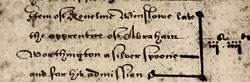 Item of Kenelme Winslowe late
the apprentice of Abraham
Worthington a silver spoone
and for his admission